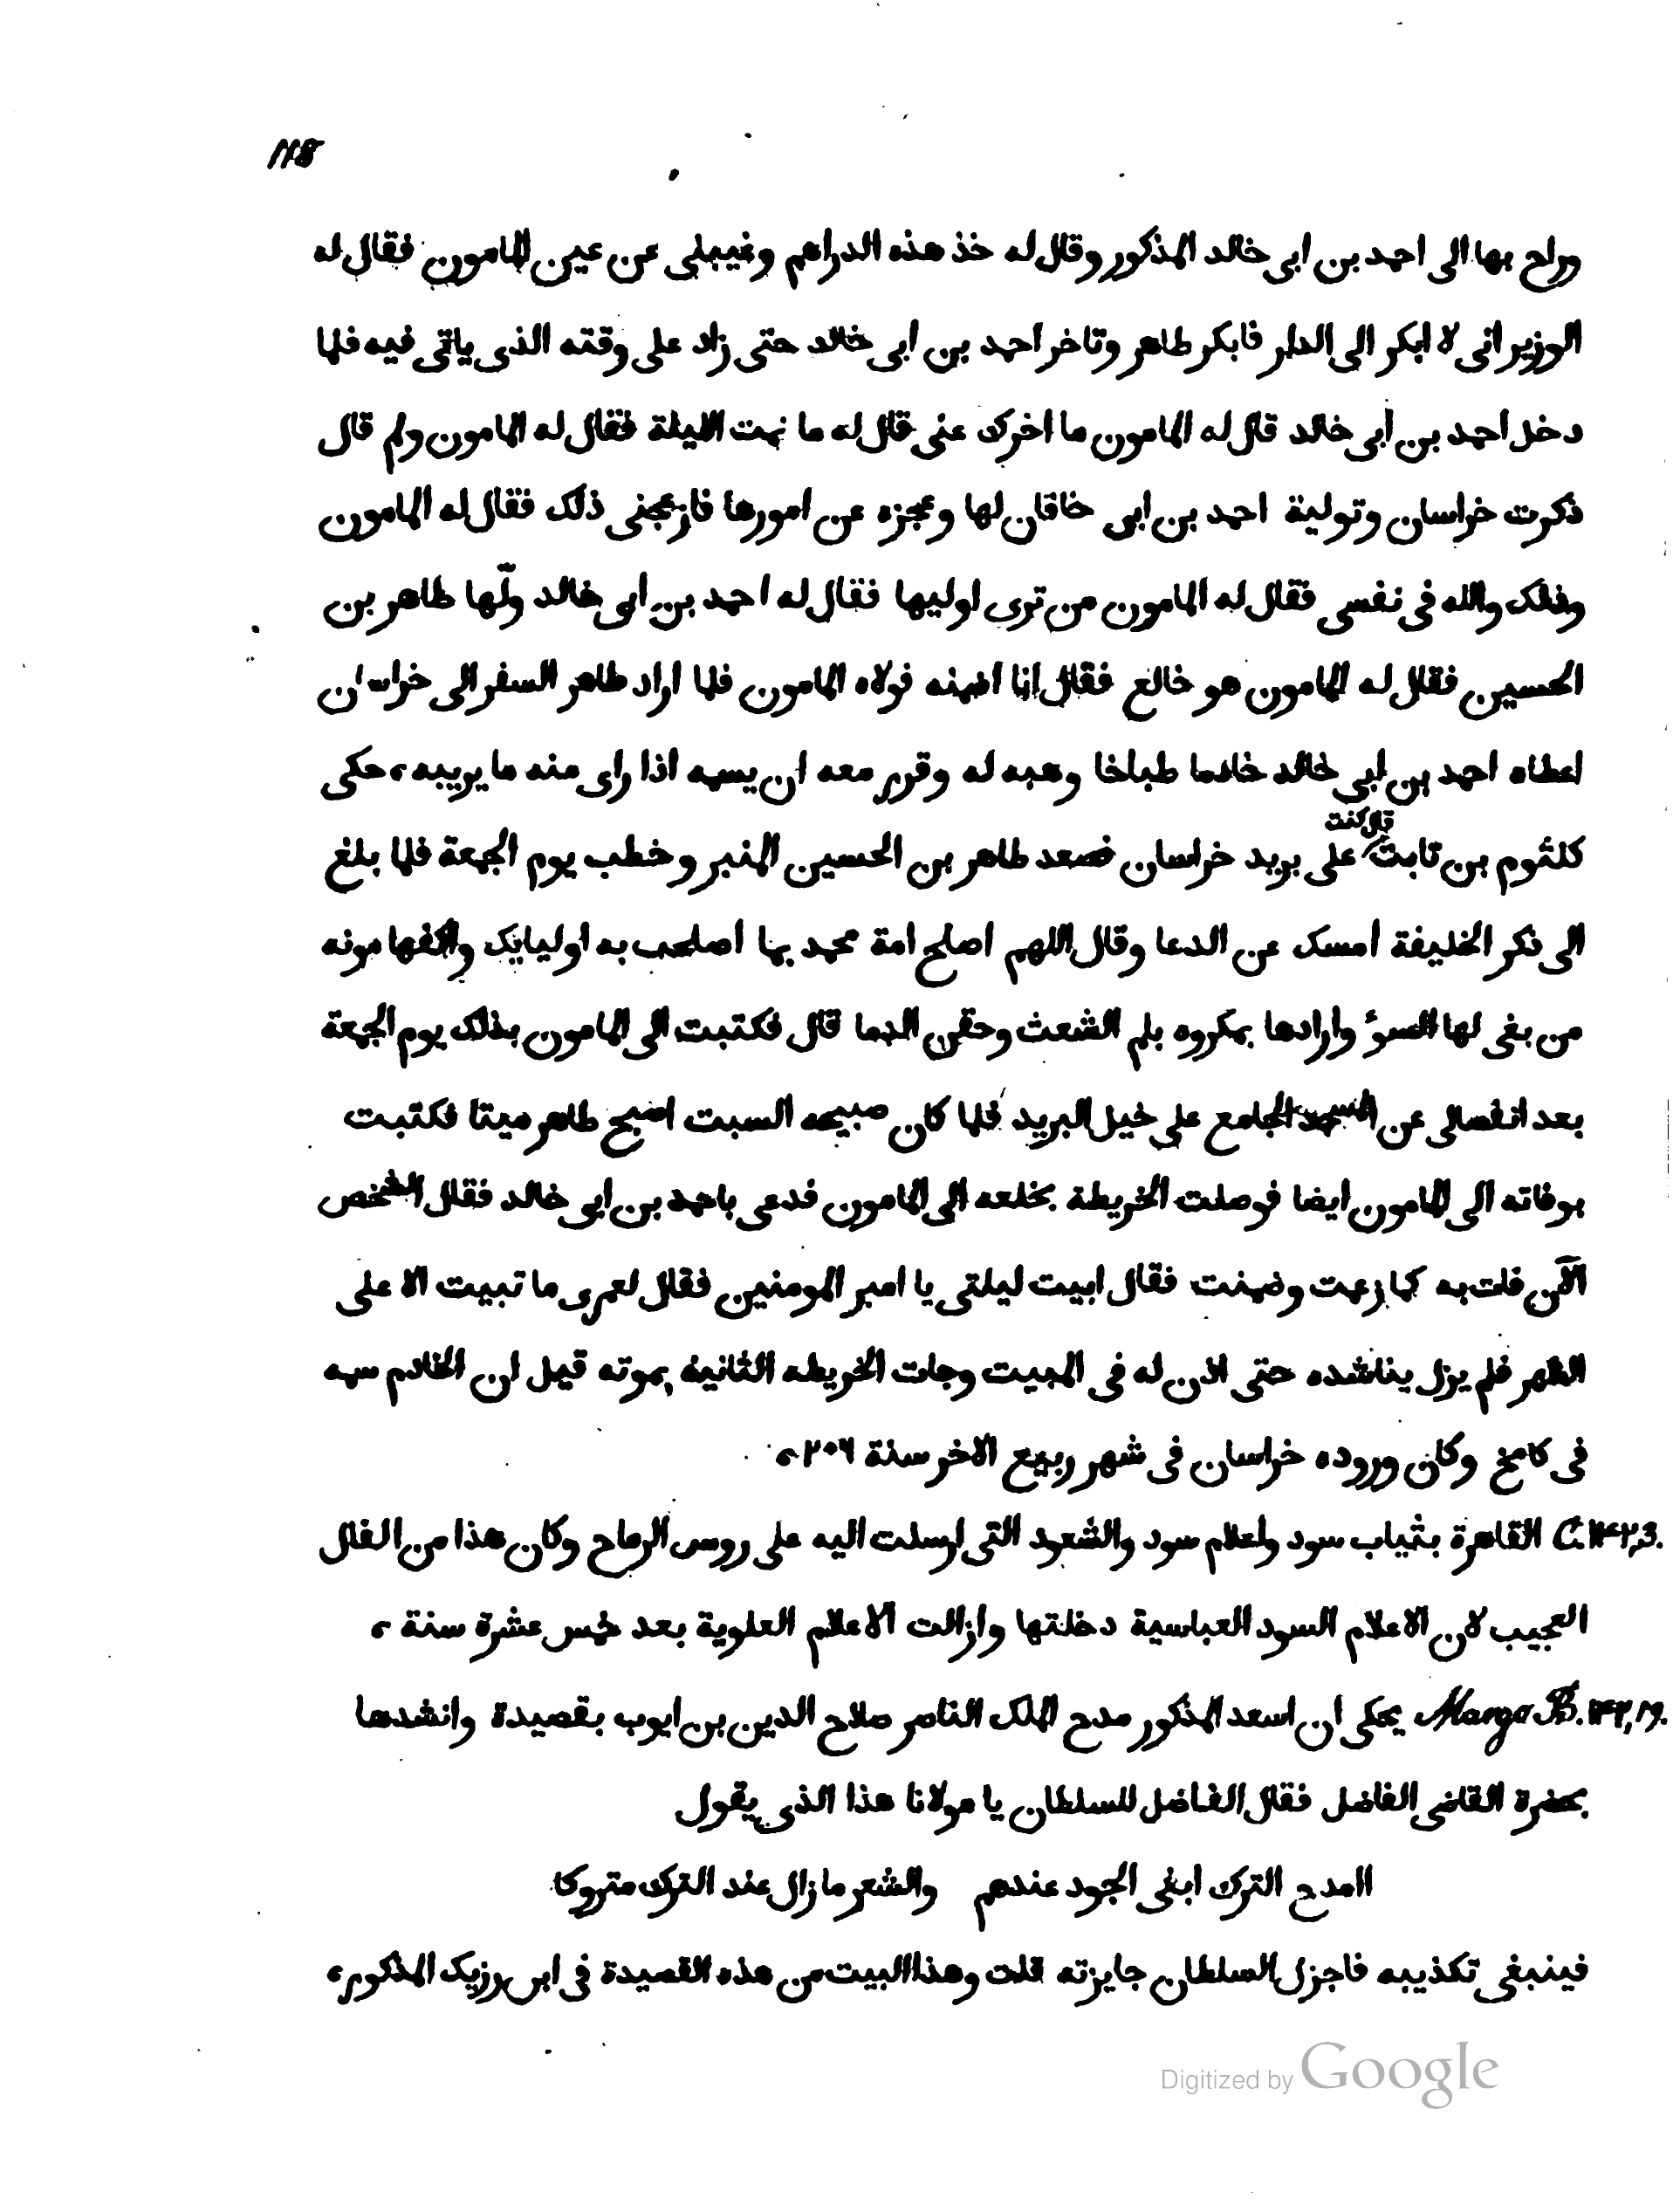 118
وراح بها الى احمد بن ابى خالد المذكور وقال له خذ هذه الدراهم وغيبلى عن عين المامون فقال له
الوزير انى لا ابكر الى الدار فابكر طاهر وتاخر احمد بن ابى خالد حتى زاد على وقته الذى ياتى فيه فلما
دخل احمد بن ابى خالد قال له المامون ما اخرك عنى قال له ما نمت الليلة فقال له المامون ولم قال
ذكرت خراسان وتولية احمد بن ابى خاقان لها وعجزه عن امورها فازعجنى ذلك فقال له المامون
وذلك والله فى نفسى فقال له المامون من ترى اوليها فقال له احمد بن ابى خالد ولّها طاهر بن
الحسين فقال له المامون هو خالع فقال انا اضمنه فولاه المامون فلما اراد طاهر السفر الى خراسان
اعطاه احمد بن ابى خالد خادما طباخا وهبه له وقرر معه ان يسمه اذا راى منه ما يريبه، حكى
كلثوم بن ثابت قال كنت على بريد خراسان فصعد طاهر بن الحسين المنبر وخطب يوم الجمعة فلما بلغ
الى ذكر الخليفة امسك عن الدعا وقال اللهم اصلح امة محمد بما اصلحت به اوليايك واكفها مونه
من بغى لها السوؤ وارادها بمكروه بلم الشعث وحقن الدما قال فكتبت الى المامون بذلك يوم الجمعة
بعد انفصالى عن المسجد الجامع على خيل البريد فلما كان صبيحه السبت اصبح طاهر ميتا فكتبت
بوفاته الى المامون ايضا فوصلت الخريطة بخلعه الى المامون فدعى باحمد بن ابى خالد فقال اشخص
الآن فات به كما زعمت وضمنت فقال ابيت ليلتى يا امير المومنين فقال لعمرى ما تبيت الا على
الظهر فلم يزل يناشده حتى اذن له فى المبيت وجات الخريطه الثانية بموته قيل ان الخادم سمه
فى كامخ وكان وروده خراسان فى شهر ربيع الاخر سنة ٢٠٦،
C. ١٤٢,3. القاهرة بثياب سود واعلام سود والشعور التى ارسلت اليه على روس الرماح وكان هذا من الفال
العجيب لان الاعلام السود العباسية دخلتها وازالت الاعلام العلوية بعد خمس عشرة سنة،
Marga B. ١٤٢,١٩. يحكى ان اسعد المذكور مدح الملك الناصر صلاح الدين بن ايوب بقصيدة وانشدها
بحضرة القاضى الفاضل فقال الفاضل للسلطان يا مولانا هذا الذى يقول
اامدح الترك ابغى الجود عندهم والشعر ما زال عند الترك متروكا
فينبغى تكذيبه فاجزل السلطان جايزته قلت وهذا البيت من هذه القصيدة فى ابن رزيك المذكور،
Digitized by Google